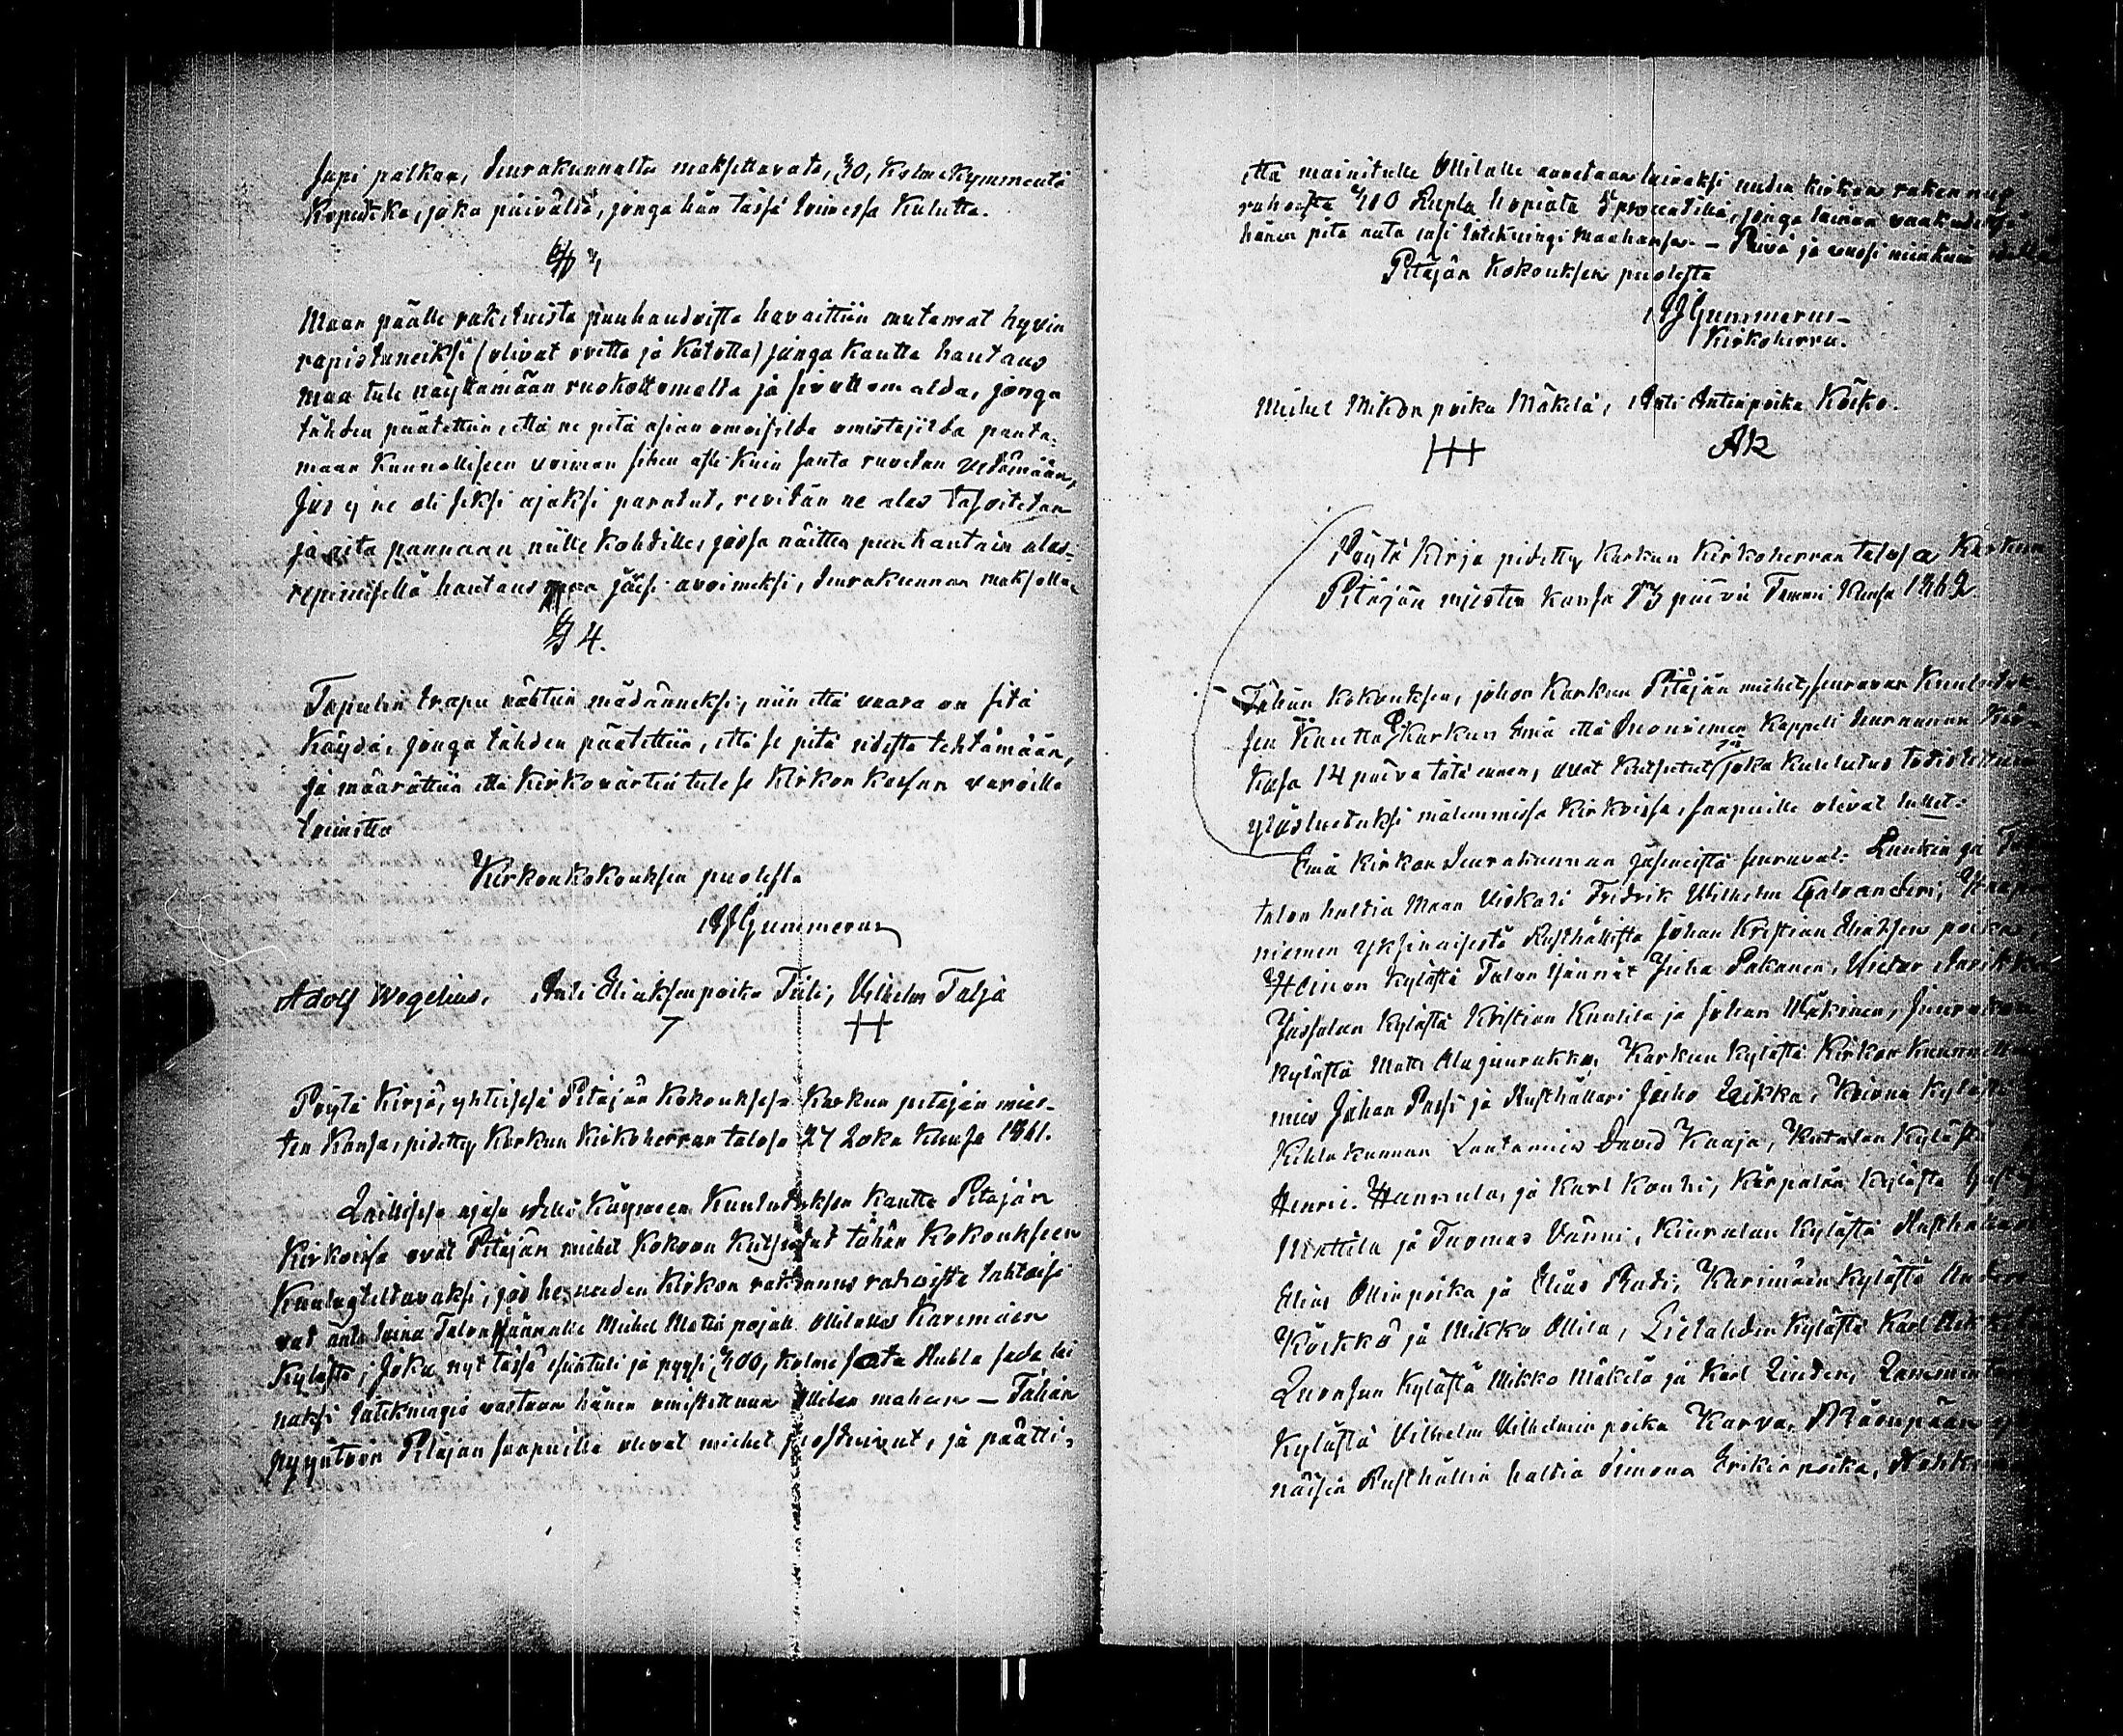 sapi palkan, Seurakunnalta maksettavata, 30, Kolmekymmentä
Kopeikka, joka päivältä, jonga hän tässä toimessa kulutta.
§ 3
Maan päälle raketuista puuhaudoista havaittiin mutamat hyvin
rapistuneiksi (olivat ovitta ja katotta) jonga kautta hautaus
maa tule näyttämään ruokottomalta ja sivuttomalda, jonga
tähden päätettiin, että ne pitä asian omaisilda omistajilda panta-
maan kunnolliseen voiman siihen asti kuin santa ruvetan vetämään,
Jos ej ne ole siksi ajaksi paratut, revitän ne alas tasoitetan
ja sita pannaan niille kohdille, joissa näitten puuhautain alas-
repimisellä hautausmaa jäisi avoimeksi, Seurakunnan maksolla.
§ 4.
Tapulin trapu nähtiin mädänneksi, niin että vaara on sitä
käydä, jonga tähden päätettiin, että se pitä uudesta tehtämään,
ja määrättiin että Kirkovärtin tule se Kirkon kassan varoilla
toimitta
Kirkonkokouksen puolesta
AJGummerus
Adolf Wegelius, Anti Eliaksenpoika Tiili, Vilhelm Talja
Pöytä Kirja, yhteisessä Pitäjän Kokouksesa Karkun pitäjän mies-
ten kansa, pidetty Karkun kirkoherran talosa 27 Loka kuusa 1861.
Laillisesa ajasa edellä käyneen kuulutuksen kautta Pitäjän
Kirkoissa ovat Pitäjän miehet kokoon kutsutut tähän Kokoukseen
kuulusteltavaksi, jos he uuden Kirkon rakennus rahoista tahtoisi
vat anta laina Talon Isännälle Mikel Matin pojalle Ollilalle Karimäen
Kylästä; Joka nyt tässä esiintuli ja pyysi 300, kolme sata Rubla sada lai
naksi Intekningiä vastaan hänen omistettavaan Ollilan mahan – Tähän
pyyntöön Pitäjän saapuilla olevat miehet suostuivat, ja päätti,
että mainitulle Ollilalle annetaan lainaksi uuden kirkon rakennus
rahoista 300 Rupla hopiata 5 procentilla, jonga lainan vaakudeksi
hänen pitä anta ensi Intekningi Maahansa. – Päivä ja vuosi niinkuin edellä
Pitäjän Kokouksen puolesta
AJGummerus
Kirkoherra.
Mickel Mikon poika Mäkelä, Anti Antinpoika Köikö.
AK
Pöytä Kirja pidetty Karkun Kirkoherran talosa Karkun
Pitäjän miesten kansa 13 päivä Tammi Kuusa 1862.
Tähän Kokouksen, johon Karkun Pitäjän miehet, seuravan Kuulutuk-
sen kautta Karkun Emä että Suoniemen Kappeli Seurannan Kir-
kosa 14 päivä tätä ennen, ovat kutsutut ja joka kuulutus todistettiin
ylösluetuksi molemmissa Kirkoissa, saapuille olivat tullet:
Emä Kirkon Seurakunnan jäsenistä seuravat: Lunkin ja
talon haltia Maan Viskali Fredrik Wilhelm Galvander;
niemen yksinäisestä Rusthållista Johan Kristian Eliaksen poika
Heinon Kylästä Talon Isännät Juha Pakanen, Victor
Jussalan Kylästä Kristian Knuutila ja Johan Mäkinen,
kylästä Matti Alajuurakko, Karkun kylästä Kirkon
mies Johan Pussi ja Rusthållari Juho Leikka, Koivun kylästä
Kihlakunnan Lautamies David Kaaja, Kutalan Kylästä
Henric. Hannula, ja Karl Kouhi, Kärpälän kylästä
Mattila ja Tuomas Vänni, Kiuralan Kylästä
Elias Ollinpoika ja Elias Rudi; Karimäen Kylästä
Köikkö ja Mikko Ollila, Lielahden Kylästä Karl
Luonsun Kylästä Mikko Mäkelä ja Karl Linden,
Kylästä Vilhelm Vilhelmin poika Karva,
näisen Rusthållin haltia Simona Erikin poika,